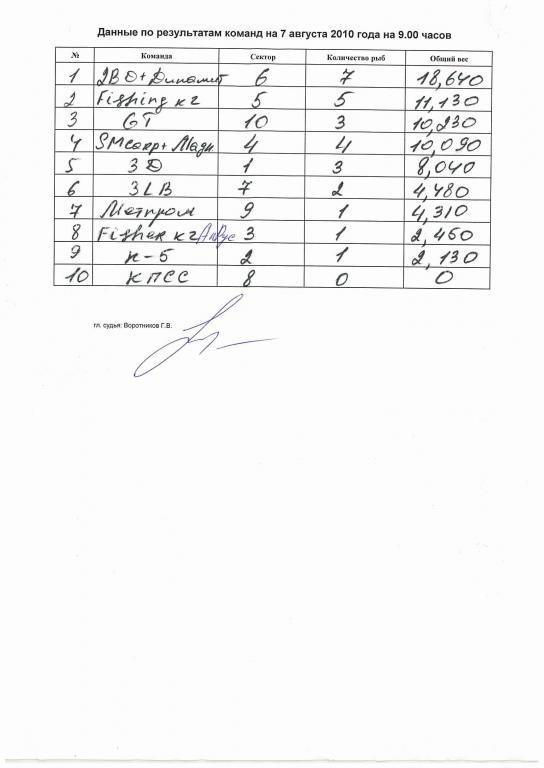 Данные по результатам команд на 7 августа 2010 года на 9.00 часов
№ Команда Сектор Количество рыб Общий вес
1 2BD+Динамит 6 7 18,640
2 Fishing кг 5 5 11,130
3 GT 10 3 10,230
4 SMcorp+ 4 4 10,090
5 3D 1 3 8,040
6 3LB 7 2 4,480
7 Метпром 9 1 4,310
8 Fisher кг 3 1 2,450
9 к-5 2 1 2,130
10 КПСС 8 0 0
гл. судья: Воротников Г.В.